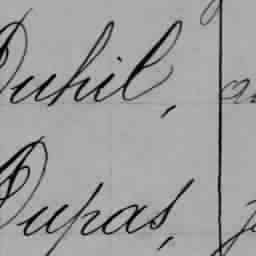 Duhil,
Dupas,